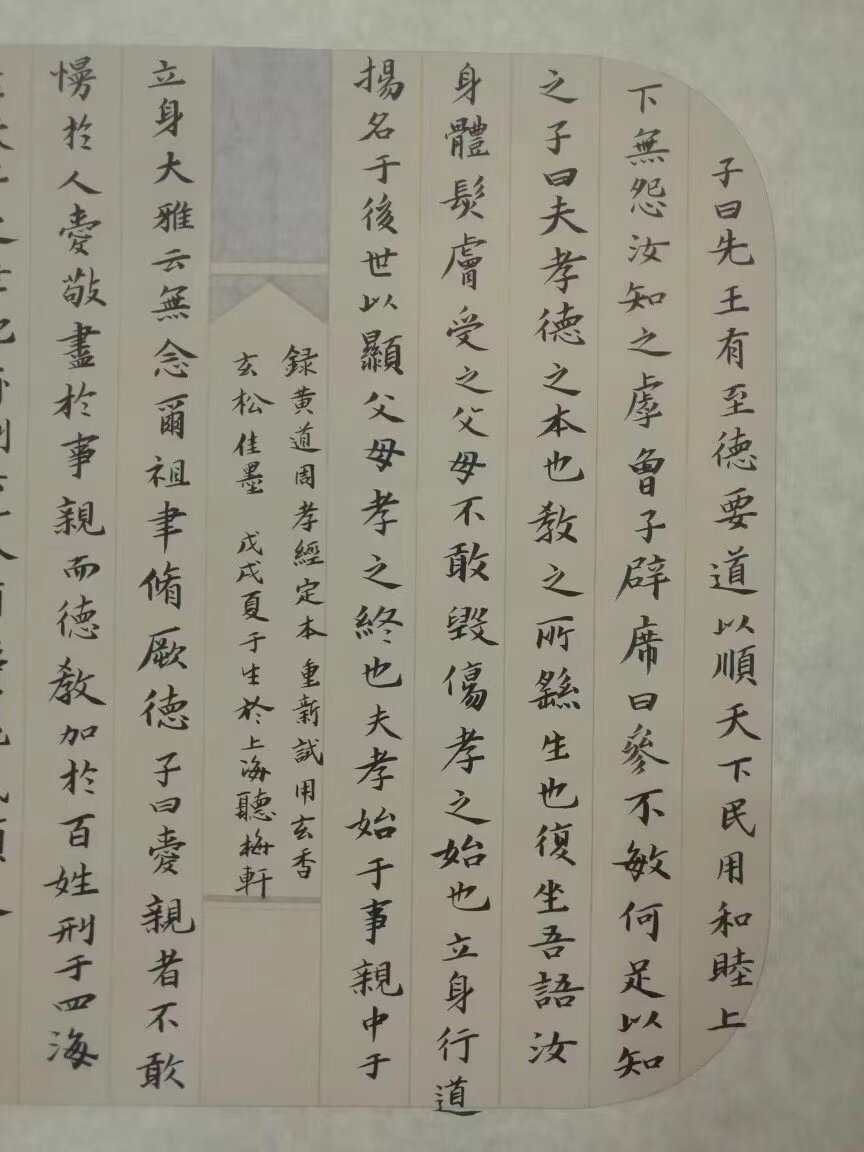 子曰先王有至德要道以順天下民用和睦上
下無怨汝知之虖曾子辟席曰參不敏何足以知
之子曰夫孝德之本也敎之所繇生也復坐吾語汝
身體髮膚受之父母不敢毀傷孝之始也立身行道
揚名于後世以顯父母孝之終也夫孝始于事親中于
錄黄道周孝經定本重新試用玄香
玄松佳墨 戊戌夏于生於上海聽梅軒
立身大雅云無念爾祖聿脩厥德子曰愛親者不敢
慢於人愛敬盡於事親而德敎加於百姓刑于四海